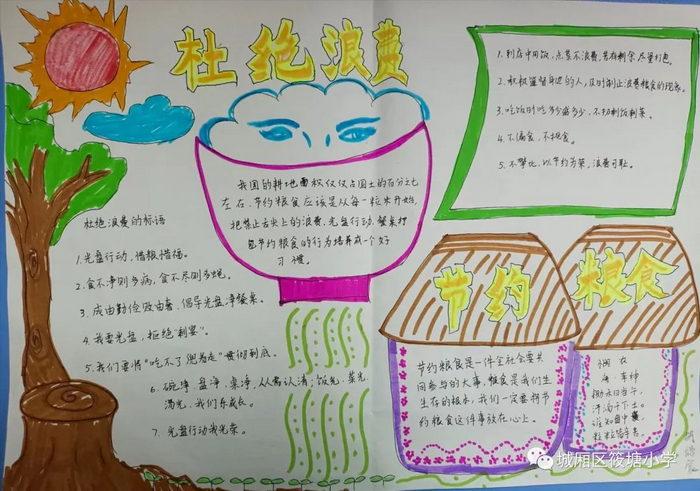 杜绝浪费
1.到店中用饭，点菜不浪费，若有剩余尽量打包。
2.积极监督身边的人，及时制止浪费粮食的现象。
3.吃饭时吃多少盛多少，不扔剩饭剩菜。
4.不偏食，不挑食。
5.不攀比，以节约为荣，浪费可耻。
我国的耕地面积仅仅占国土的百分之七
左在.节约粮食应该是从每一粒米开始.
把禁止舌尖上的浪费.光盘行动.餐桌打
包节约粮食的行为培养成一个好
习惯.
杜绝浪费的标语
1.光盘行动，惜粮惜福。
2.食不净则多病，食不尽则多
3.成由勤俭败由奢，倡导光盘净餐桌。
4.我要光盘，拒绝"剩宴"。
5.我们要将"吃不了兜着走"贯彻到底。
6.碗净 盘净，桌净，从需认清；饭光 菜光
汤光，我们东成长。
7.光盘行动我光荣。
节约
粮食
节约粮食是一件全社会要共
同参与的大事，粮食是我们生
生存的根本，我们一定要将节
约粮食这件事放在心上。
悯农
李绅
锄禾日当午，
汗滴禾下土。
谁知盘中
粒粒皆辛苦。
城厢区筱塘小学